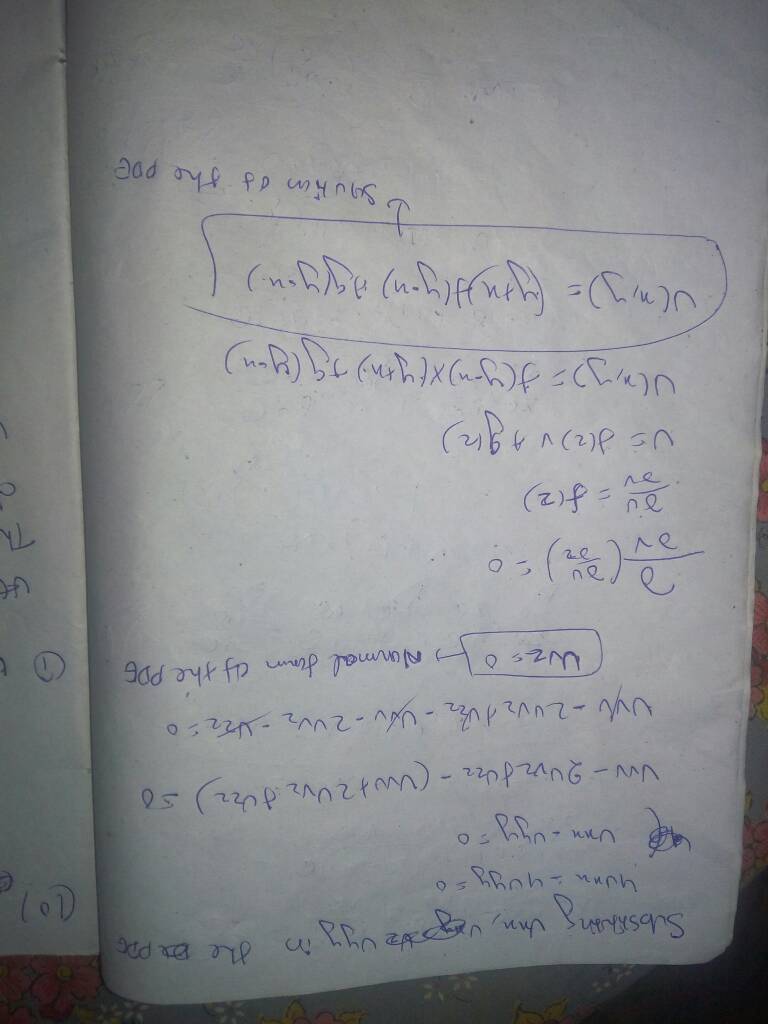 Substituting Uxx, Uyy in the PDE
4Uxx - 4Uyy = 0
Uxx - Uyy = 0
Uvv - 2Uvz + Uzz - (Uvv + 2Uvz + Uzz) = 0
Uvv - 2Uvz + Uzz - Uvv - 2Uvz - Uzz = 0
Uvz = 0 → Normal form of the PDE
∂/∂v (∂u/∂z) = 0
∂u/∂v = f(z)
U = f(z) v + g(z)
U(x,y) = f(y-x) × (y+x) + g(y-x)
U(x,y) = (y+x) f(y-x) + g(y-x)
↓
Solution of the PDE
(10)
①